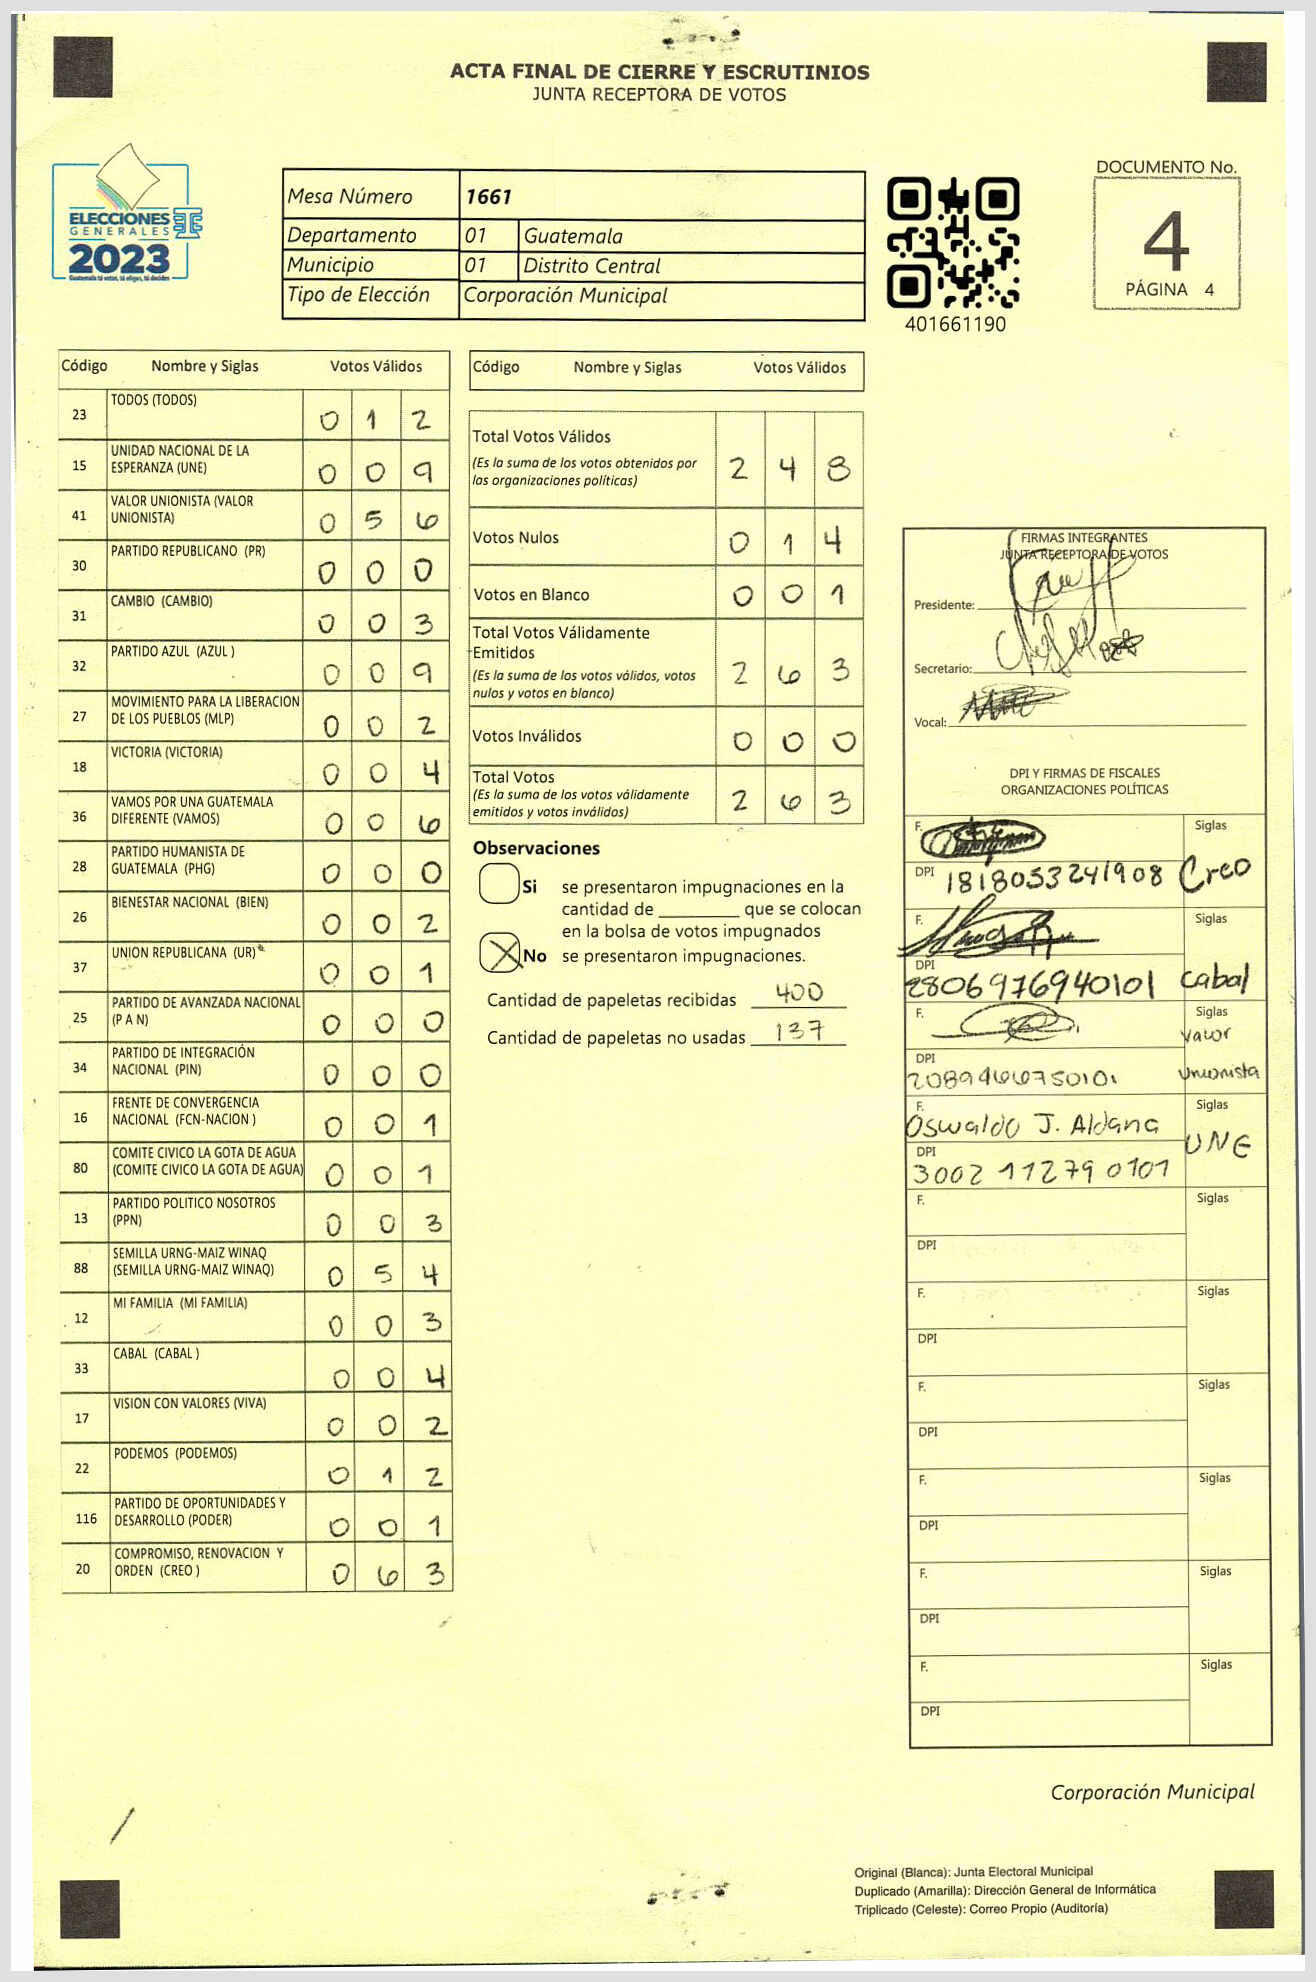 ACTA FINAL DE CIERRE Y ESCRUTINIOS
JUNTA RECEPTORA DE VOTOS
ELECCIONES
GENERALES
2023
Guatemala tú votas, tú eliges, tú decides
Mesa Número 1661
Departamento 01 Guatemala
Municipio 01 Distrito Central
Tipo de Elección Corporación Municipal
401661190
DOCUMENTO No.
4
PÁGINA 4
Código Nombre y Siglas Votos Válidos
23 TODOS (TODOS) 0 1 2
15 UNIDAD NACIONAL DE LA
ESPERANZA (UNE) 0 0 9
41 VALOR UNIONISTA (VALOR
UNIONISTA) 0 5 6
30 PARTIDO REPUBLICANO (PR) 0 0 0
31 CAMBIO (CAMBIO) 0 0 3
32 PARTIDO AZUL (AZUL ) 0 0 9
27 MOVIMIENTO PARA LA LIBERACION
DE LOS PUEBLOS (MLP) 0 0 2
18 VICTORIA (VICTORIA) 0 0 4
36 VAMOS POR UNA GUATEMALA
DIFERENTE (VAMOS) 0 0 6
28 PARTIDO HUMANISTA DE
GUATEMALA (PHG) 0 0 0
26 BIENESTAR NACIONAL (BIEN) 0 0 2
37 UNION REPUBLICANA (UR) 0 0 1
25 PARTIDO DE AVANZADA NACIONAL
(P A N) 0 0 0
34 PARTIDO DE INTEGRACIÓN
NACIONAL (PIN) 0 0 0
16 FRENTE DE CONVERGENCIA
NACIONAL (FCN-NACION ) 0 0 1
80 COMITE CIVICO LA GOTA DE AGUA
(COMITE CIVICO LA GOTA DE AGUA) 0 0 1
13 PARTIDO POLITICO NOSOTROS
(PPN) 0 0 3
88 SEMILLA URNG-MAIZ WINAQ
(SEMILLA URNG-MAIZ WINAQ) 0 5 4
12 MI FAMILIA (MI FAMILIA) 0 0 3
33 CABAL (CABAL ) 0 0 4
17 VISION CON VALORES (VIVA) 0 0 2
22 PODEMOS (PODEMOS) 0 1 2
116 PARTIDO DE OPORTUNIDADES Y
DESARROLLO (PODER) 0 0 1
20 COMPROMISO, RENOVACION Y
ORDEN (CREO ) 0 6 3
Código Nombre y Siglas Votos Válidos
Total Votos Válidos
(Es la suma de los votos obtenidos por
las organizaciones políticas) 2 4 8
Votos Nulos 0 1 4
Votos en Blanco 0 0 1
Total Votos Válidamente
Emitidos
(Es la suma de los votos válidos, votos
nulos y votos en blanco) 2 6 3
Votos Inválidos 0 0 0
Total Votos
(Es la suma de los votos válidamente
emitidos y votos inválidos) 2 6 3
Observaciones
Si se presentaron impugnaciones en la
cantidad de ________ que se colocan
en la bolsa de votos impugnados
No se presentaron impugnaciones.
Cantidad de papeletas recibidas 400
Cantidad de papeletas no usadas 137
FIRMAS INTEGRANTES
JUNTA RECEPTORA DE VOTOS
Presidente:
Secretario:
Vocal:
DPI Y FIRMAS DE FISCALES
ORGANIZACIONES POLÍTICAS
F. Siglas
DPI 1818053241908 Creo
F. Siglas
DPI
2806976940101 Cabal
F. Siglas
Valor
DPI
2089466750101 Unionista
F. Siglas
Oswaldo J. Aldana
UNE
DPI
3002 11279 0101
F. Siglas
DPI
F. Siglas
DPI
F. Siglas
DPI
F. Siglas
DPI
F. Siglas
DPI
F. Siglas
DPI
Corporación Municipal
Original (Blanca): Junta Electoral Municipal
Duplicado (Amarilla): Dirección General de Informática
Triplicado (Celeste): Correo Propio (Auditoría)